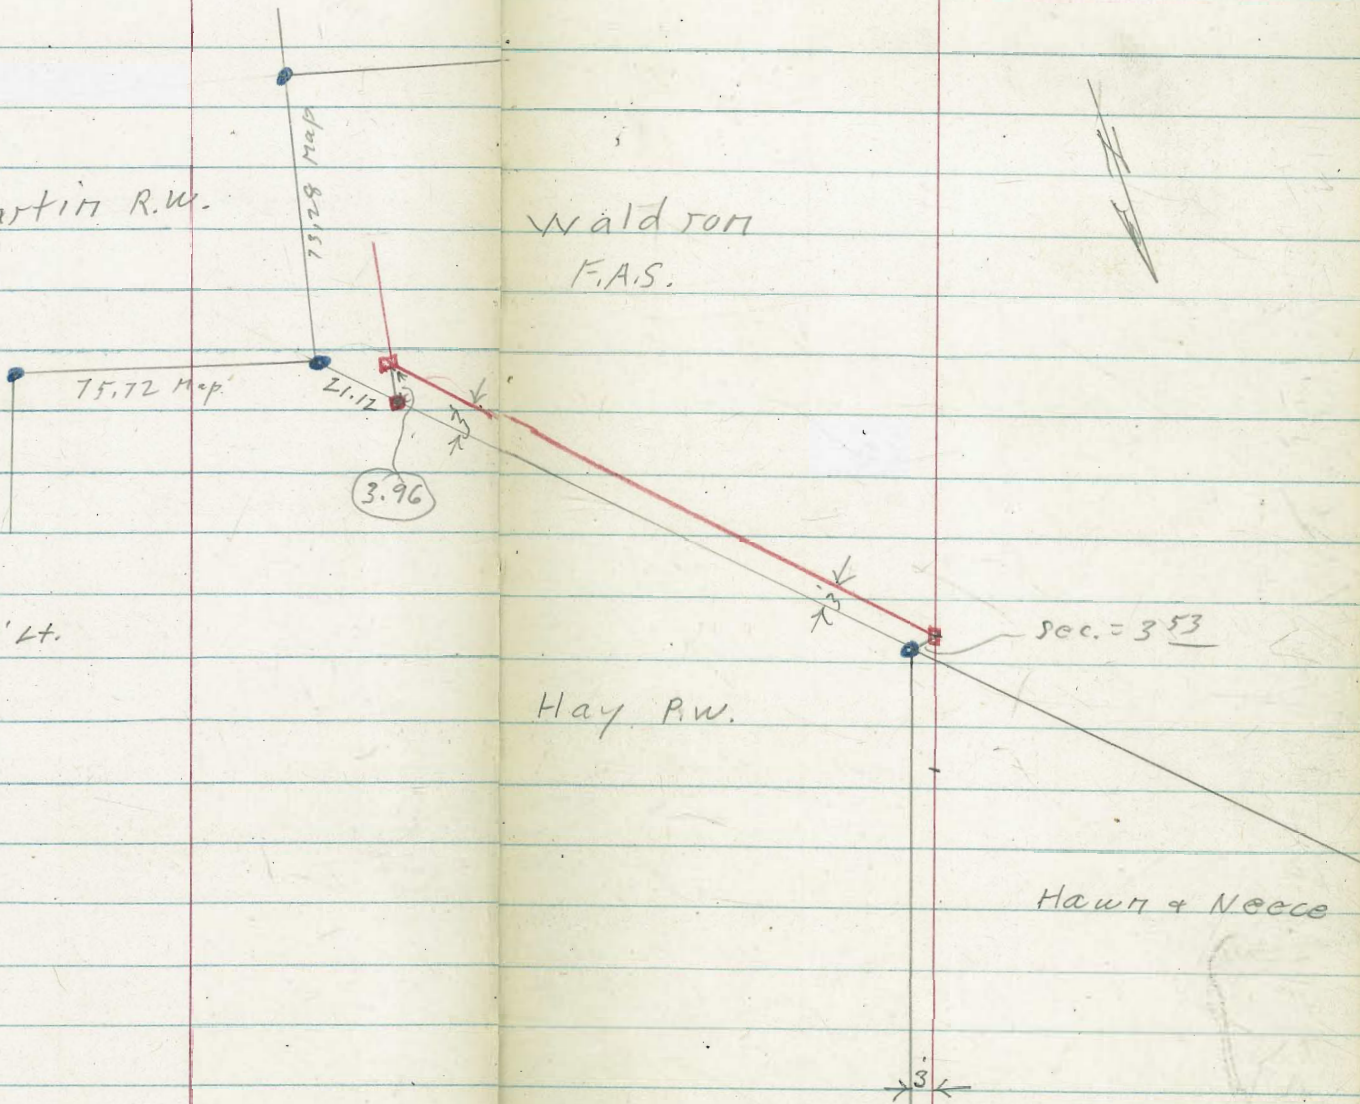 artin R.W.
151.28 Map
Waldron
F.A.S.
75.72 Map
21.12
3
3.96
3
Sec. = 3 53
' Lt.
Hay R.W.
Hawn & Neece
3'